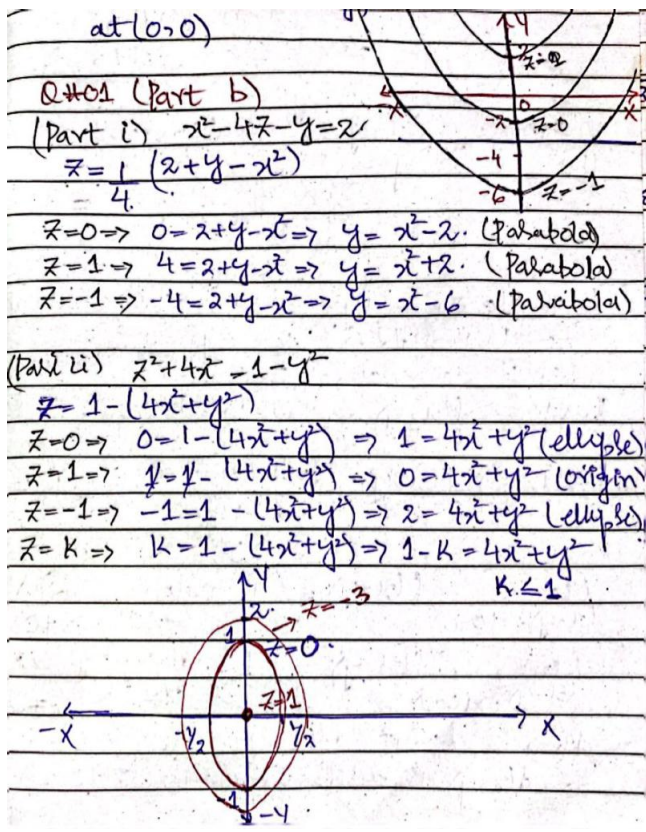 at (0,0)
Y
2
z=1
-x
0
x
-2
z=0
-4
-6
z=-1
Q#01 (Part b)
(Part i) x²-4z-y=2.
z=1/4 (2+y-x²)
z=0 => 0=2+y-x² => y=x²-2. (Parabola)
z=1 => 4=2+y-x² => y=x²+2. (Parabola)
z=-1 => -4=2+y-x² => y=x²-6 (Parabola)
(Part ii) z²+4x²=1-y²
z=1-(4x²+y²)
z=0 => 0=1-(4x²+y²) => 1=4x²+y² (ellipse)
z=1 => 1=1-(4x²+y²) => 0=4x²+y² (origin)
z=-1 => -1=1-(4x²+y²) => 2=4x²+y² (ellipse)
z=K => K=1-(4x²+y²) => 1-K=4x²+y²
K≤1
Y
2
z=-3
1
z=0.
z=1
-x
-1/2
1/2
x
-1
-Y